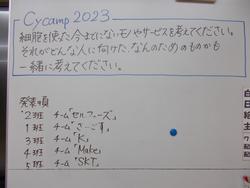 Cycamp 2023
細胞を使た今までにないモノやサービスを考えてください。
それがどんな人に向けた、なんのためのものかも
一緒に考えてください。
発表順
2班 チーム「セルフィーズ」
1班 チーム「さーごす」
3班 チーム「K」
4班 チーム「Make」
5班 チーム「SKT」